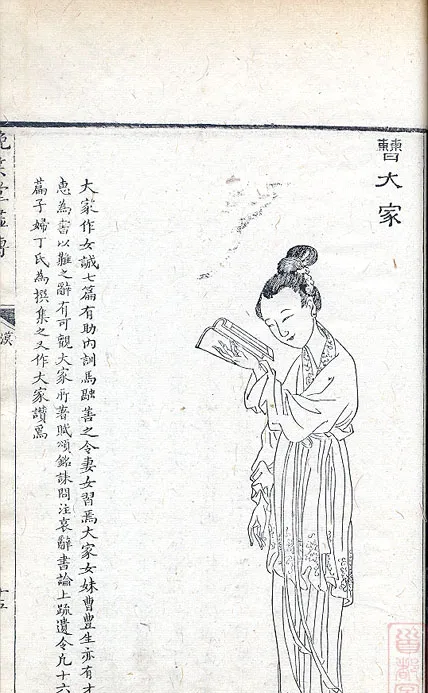 曹大家
大家作女誡七篇有助內訓馬融善之令妻女習焉大家女妹曹豐生亦有才
惠為書以難之辭有可觀大家所著賦頌銘誄問注哀辭書論上疏遺令凡十六
篇子婦丁氏為撰集之又作大家讚焉
晚笑堂畫傳
漢